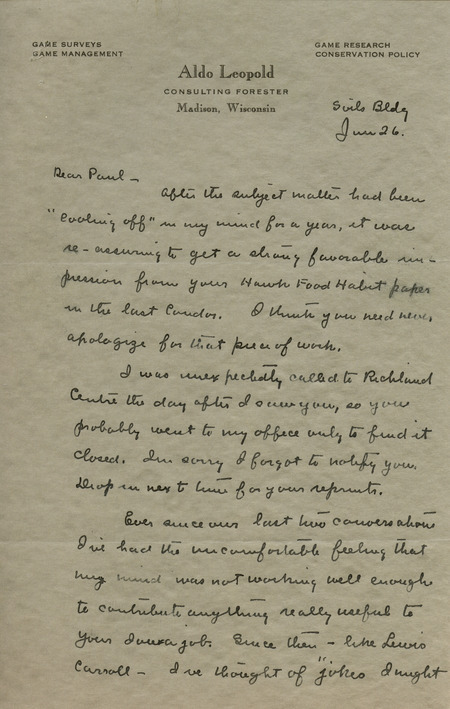 GAME SURVEYS
GAME MANAGEMENT
GAME RESEARCH
CONSERVATION POLICY
Aldo Leopold
CONSULTING FORESTER
Madison, Wisconsin
Soils Bldg
Jun 26.
Dear Paul -
After the subject matter had been
"cooling off" in my mind for a year, it was
re-assuring to get a strong favorable im-
pression from your Hawk Food Habit paper
in the last Condor. I think you need never
apologize for that piece of work.
I was unexpectedly called to Richland
Centre the day after I saw you, so you
probably went to my office only to find it
closed. I'm sorry I forgot to notify you.
Drop in next time for your reprints.
Ever since our last two conversations
I've had the uncomfortable feeling that
my mind was not working well enough
to contribute anything really useful to
your job. Since then - like Lewis
Carroll - I've thought of "jokes I might